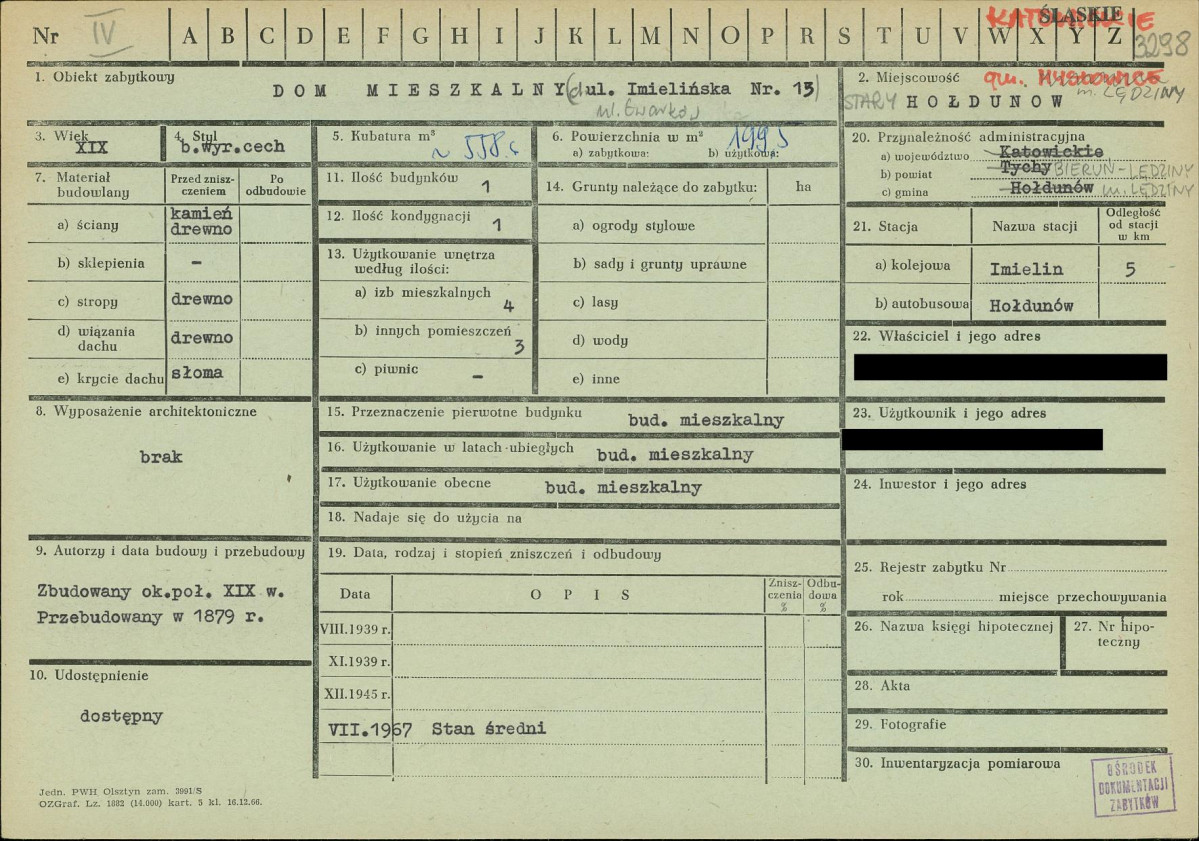 Nr IV A B C D E F G H I J K L M N O P R S T U V W X Y Z
KATOWICKIE ŚLĄSKIE
3298
1. Obiekt zabytkowy
DOM MIESZKALNY (ul. Imielińska Nr. 13)
2. Miejscowość gm. MYSŁOWICE
m. LĘDZINY
STARY HOŁDUNÓW
3. Wiek
XIX
4. Styl
b.wyr.cech
5. Kubatura m³
~ 558
6. Powierzchnia w m²
a) zabytkowa: b) użytkowa:
199
20. Przynależność administracyjna
a) województwo Katowickie
b) powiat Tychy BIERUŃ-LĘDZINY
c) gmina Hołdunów m. LĘDZINY
7. Materiał budowlany
Przed znisz-czeniem
Po odbudowie
a) ściany kamień drewno
b) sklepienia –
c) stropy drewno
d) wiązania dachu drewno
e) krycie dachu słoma
11. Ilość budynków 1
12. Ilość kondygnacji 1
13. Użytkowanie wnętrza według ilości:
a) izb mieszkalnych 4
b) innych pomieszczeń 3
c) piwnic –
14. Grunty należące do zabytku: ha
a) ogrody stylowe
b) sady i grunty uprawne
c) lasy
d) wody
e) inne
21. Stacja Nazwa stacji Odległość od stacji w km
a) kolejowa Imielin 5
b) autobusowa Hołdunów
22. Właściciel i jego adres
23. Użytkownik i jego adres
24. Inwestor i jego adres
8. Wyposażenie architektoniczne
brak
15. Przeznaczenie pierwotne budynku bud. mieszkalny
16. Użytkowanie w latach ubiegłych bud. mieszkalny
17. Użytkowanie obecne bud. mieszkalny
18. Nadaje się do użycia na
9. Autorzy i data budowy i przebudowy
Zbudowany ok.poł. XIX w.
Przebudowany w 1879 r.
10. Udostępnienie
dostępny
19. Data, rodzaj i stopień zniszczeń i odbudowy
Data OPIS Znisz-czenia % Odbu-dowa %
VIII.1939 r.
XI.1939 r.
XII.1945 r.
VII.1967 Stan średni
25. Rejestr zabytku Nr
rok miejsce przechowywania
26. Nazwa księgi hipotecznej
27. Nr hipo-teczny
28. Akta
29. Fotografie
30. Inwentaryzacja pomiarowa
OŚRODEK
DOKUMENTACJI
ZABYTKÓW
Jedn. PWH Olsztyn zam. 3991/S
OZGraf. Lz. 1882 (14.000) kart. 5 kl. 16.12.66.